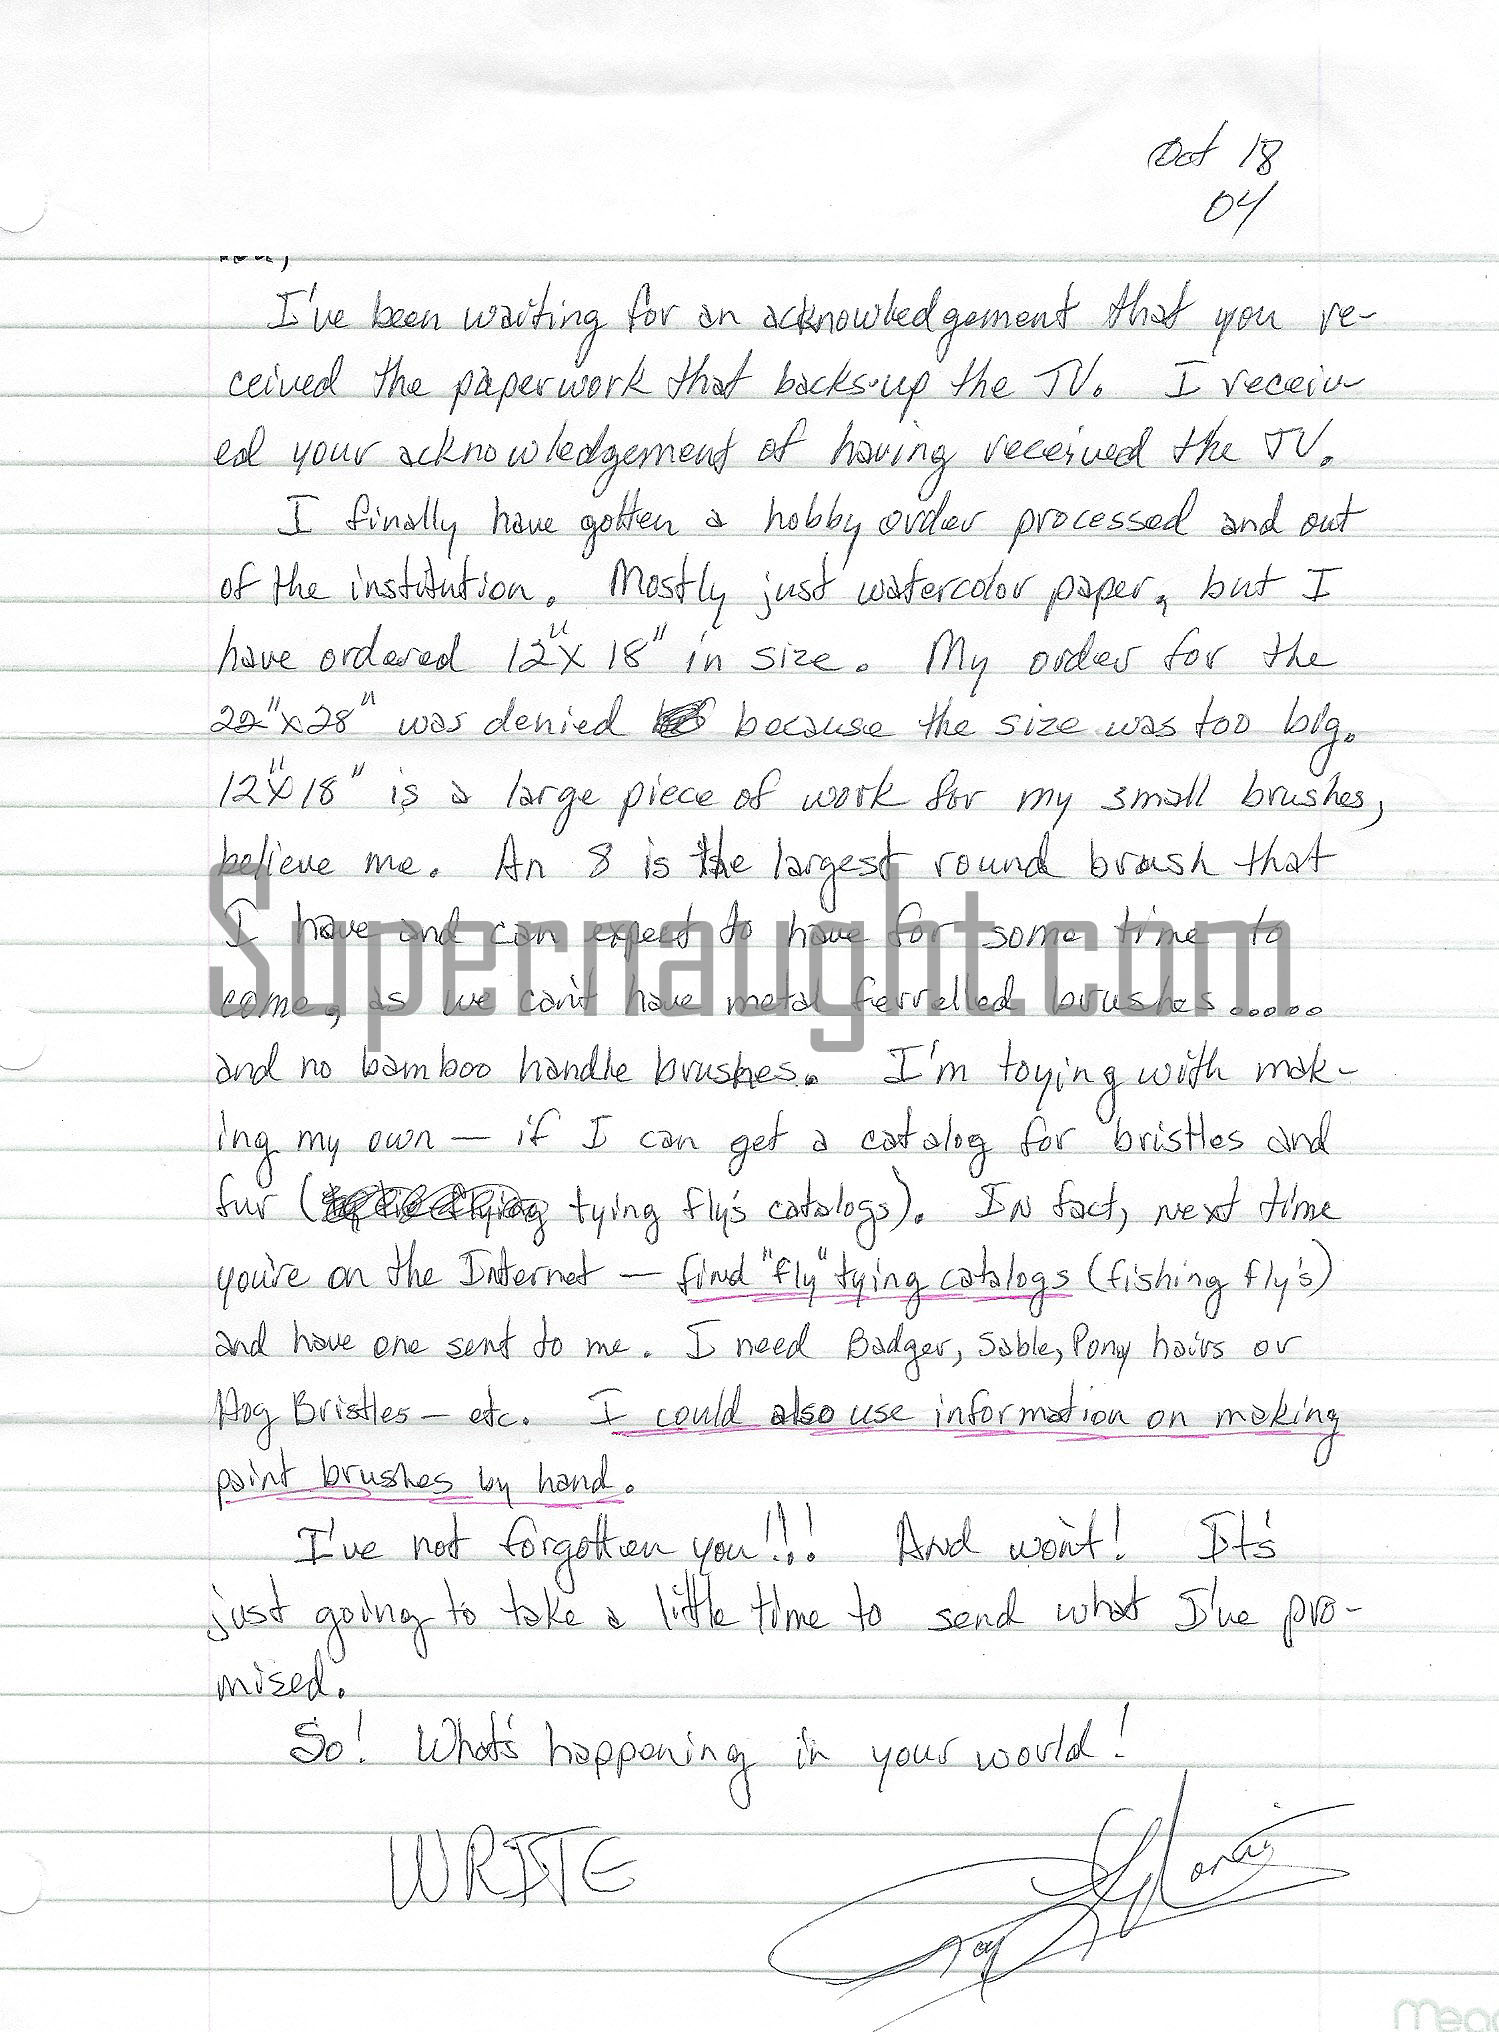 Oct 18
04
I've been waiting for an acknowledgement that you re-
ceived the paperwork that backs-up the TV. I receiv-
ed your acknowledgement of having received the TV.
I finally have gotten a hobby order processed and out
of the institution. Mostly just watercolor paper, but I
have ordered 12"x 18" in size. My order for the
22"x28" was denied because the size was too big.
12"x18" is a large piece of work for my small brushes,
believe me. An 8 is the largest round brush that
I have and can expect to have for some time to
come, as we can't have metal ferrelled brushes.....
and no bamboo handle brushes. I'm toying with mak-
ing my own — if I can get a catalog for bristles and
fur ( tying fly's catalogs). In fact, next time
you're on the Internet — find "fly" tying catalogs (fishing fly's)
and have one sent to me. I need Badger, Sable, Pony hairs or
Hog Bristles — etc. I could also use information on making
paint brushes by hand.
I've not forgotten you!!! And won't! It's
just going to take a little time to send what I've pro-
mised.
So! What's happening in your world!
WRITE
Roy Norris
Supernaught.com
Mead